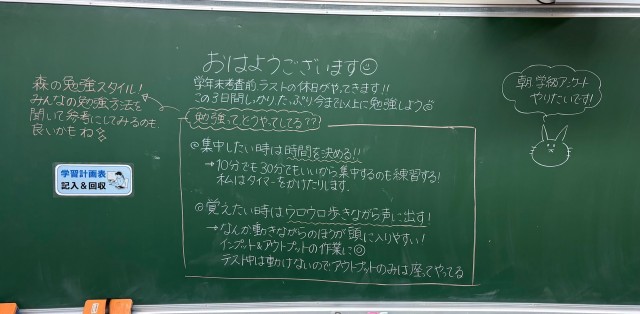 おはようございます
学年末考査前ラストの休日がやってきます!!
この3日間しっかりたっぷり今まで以上に勉強しよう
勉強ってどうやってしてる??
◎集中したい時は時間を決める!!
→10分でも30分でもいいから集中するのも練習する!
私はタイマーをかけたりします。
◎覚えたい時はウロウロ歩きながら声に出す!
→なんか動きながらのほうが頭に入りやすい!
インプット&アウトプットの作業に◎
テスト中は動けないのでアウトプットのみは座ってやってる
森の勉強スタイル!
みんなの勉強方法を
聞いて参考にしてみるのも
良いかもね
学習計画表
記入&回収
朝、学級アンケート
やりたいです!